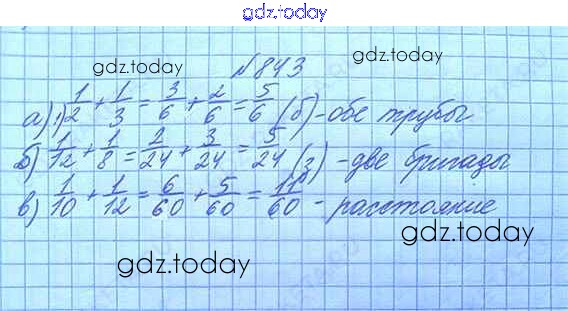 gdz.today
gdz.today №843 gdz.today
а) 1) 1/2 + 1/3 = 3/6 + 2/6 = 5/6 (б) - обе трубы
б) 1/12 + 1/8 = 2/24 + 3/24 = 5/24 (з) - две бригады
в) 1/10 + 1/12 = 6/60 + 5/60 = 11/60 - расстояние
gdz.today
gdz.today